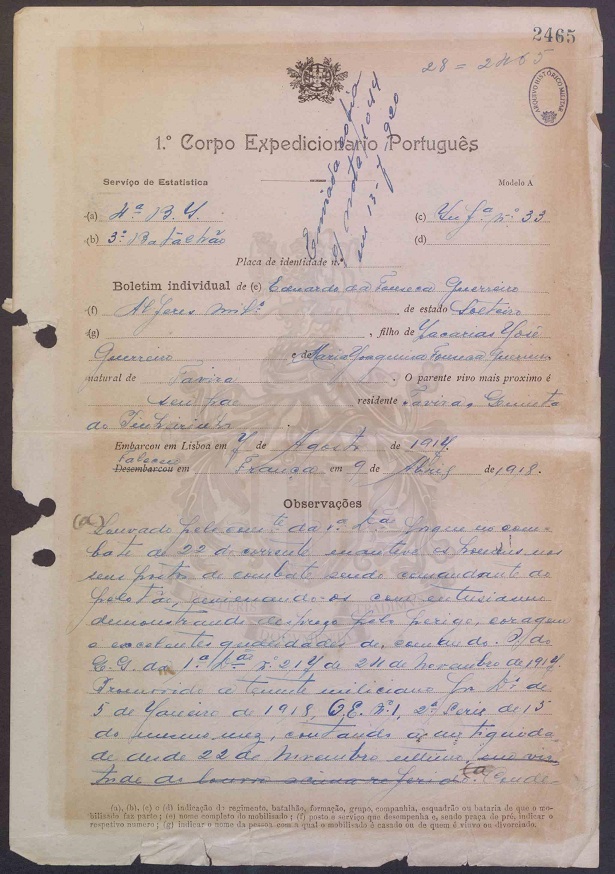 2465
28 = 2465
ARQUIVO HISTÓRICO MILITAR
1.º Corpo Expedicionario Português
Enviada copia
nota 
em 13- 920
Serviço de Estatistica
Modelo A
(a) 4ª B. I.
(c) Infª nº 33
(b) 3º Batalhão
(d)
Placa de identidade n.º
Boletim individual de (e) Eduardo da Fonseca Guerreiro
(f) Alferes milº , de estado Solteiro
(g) , filho de Zacarias José
Guerreiro e de Maria Joaquina Fonseca Guerreiro
natural de Tavira . O parente vivo mais proximo é
seu pae residente Tavira,
do
Embarcou em Lisboa em de Agosto de 1917.
Faleceu
Desembarcou em França em 9 de Abril de 1918.
Observações
(a) Louvado pelo com.te da 1.ª porque no com-
bate de 22 do corrente manteve os homens nos
seus postos de combate sendo comandante do
pelotão, com entusiasmo
demonstrando desprezo pelo perigo, coragem
e excelentes qualidades de comando.
Q. G. da 1.ª nº 217 de 24 de Novembro de 1917.
Promovido a tenente miliciano por D.º de
5 de Janeiro de 1918, O.E. nº 1, 2ª Serie de 15
do mesmo mez, contando a antiguida-
de desde 22 de Novembro ultimo,
louvor acima referido (a) Conde-
(a), (b), (c) e (d) indicação do regimento, batalhão, formação, grupo, companhia, esquadrão ou bataria de que o mo-
bilizado faz parte; (e) nome completo do mobilisado; (f) posto e serviço que desempenha e, sendo praça de pré, indicar o
respetivo numero; (g) indicar o nome da pessoa com a qual o mobilizado é casado ou de quem é viuvo ou divorciado.